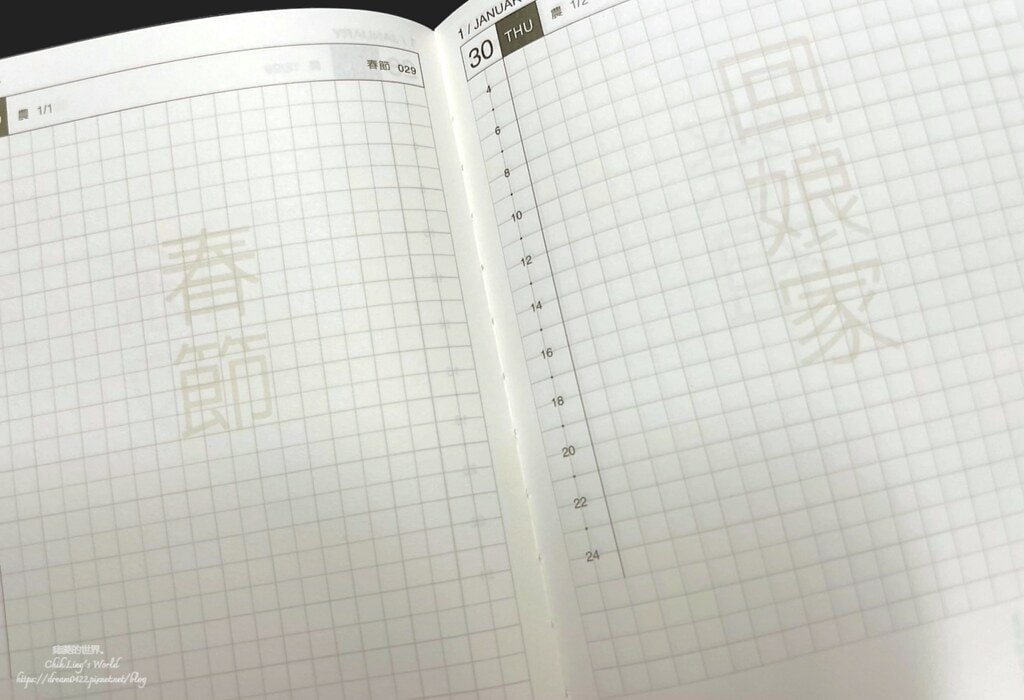 農 1/1
春節 029
春
節
1 / JANUAR
30 THU 農 1/2
4
6
8
10
12
14
16
18
20
22
24
回
娘
家
痴夢的世界。
Chih Ling's World
https://dream0422.pixnet.net/blog